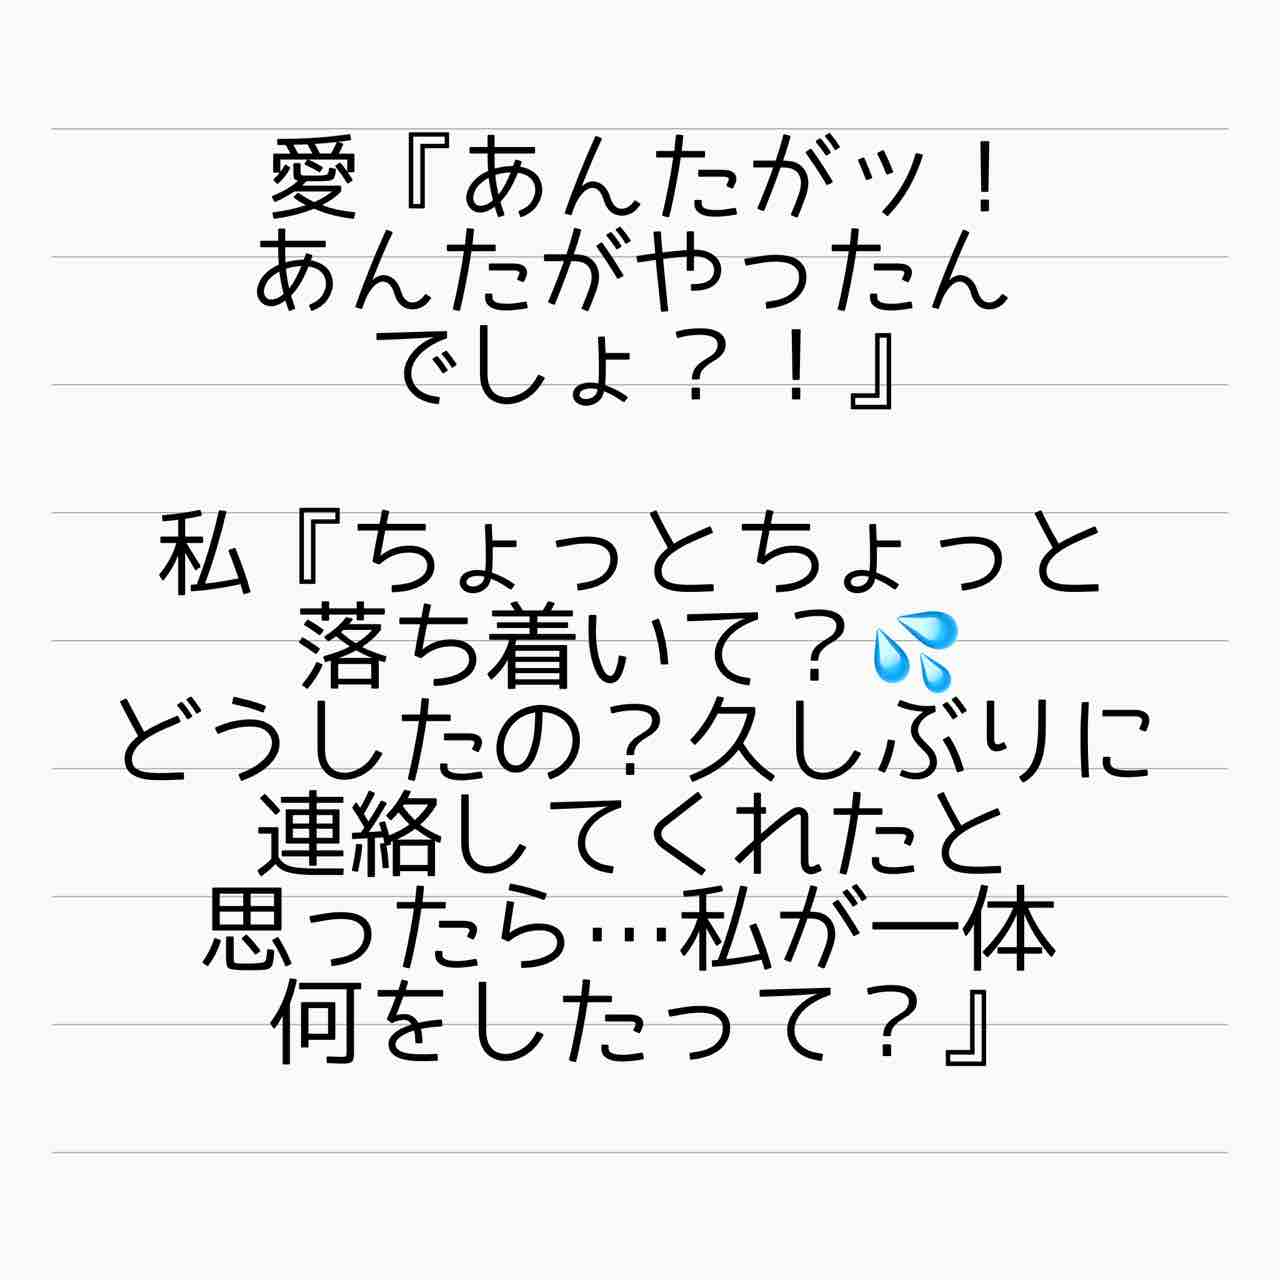 愛『あんたがッ！
あんたがやったん
でしょ？！』
私『ちょっとちょっと
落ち着いて？💦
どうしたの？久しぶりに
連絡してくれたと
思ったら…私が一体
何をしたって？』